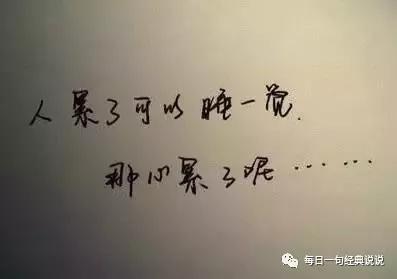 人累了可以睡一觉.
那心累了呢……
每日一句经典说说